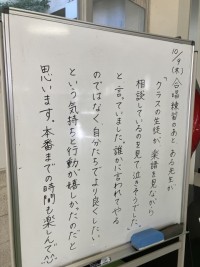 10/9(木) 合唱練習のあと、ある先生が
「クラスの生徒が楽譜を見ながら
相談しているのを見て泣きそうでした」
と言っていました。誰かに言われてやる
のではなく、自分たちでより良くしたい
という気持ちと行動が嬉しかったのだと
思います。本番までの時間も楽しんで